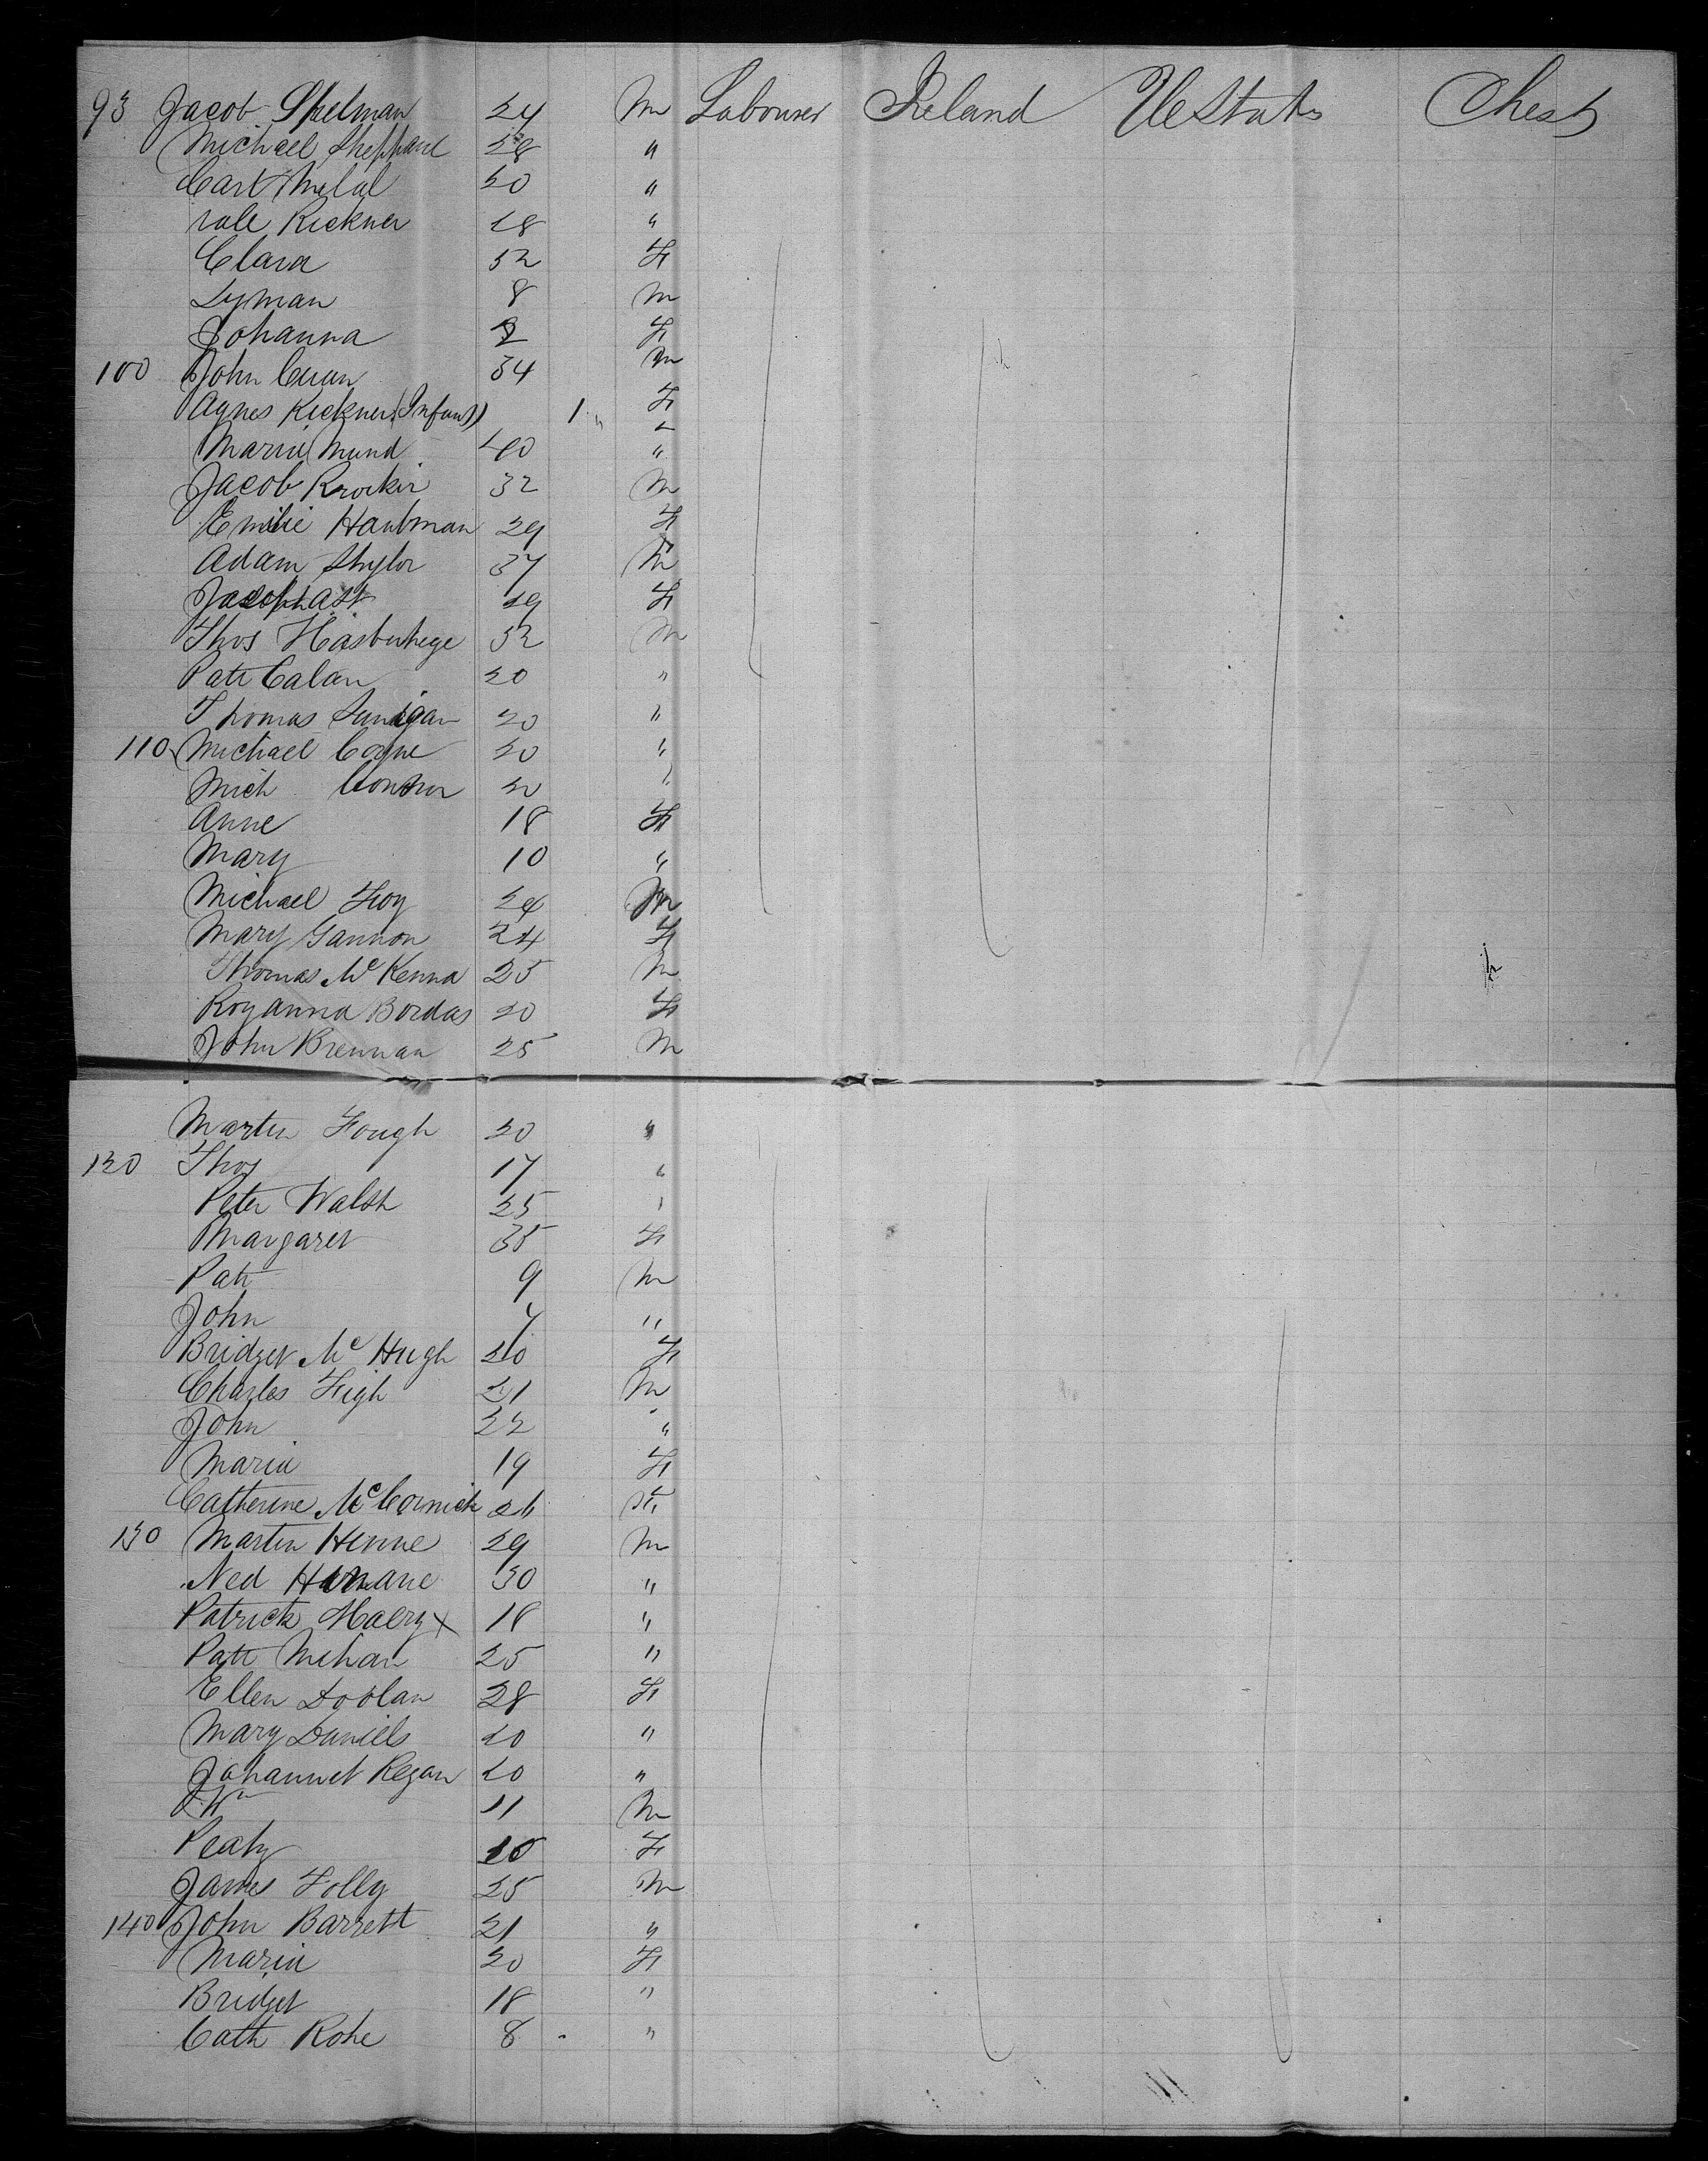 93 Jacob Spelman 24 M Labourer Ireland U States Chest
Michael Sheppard 28 "
Carl 20 "
Rickner 18 "
Clara 32 F
Lyman 8 M
Johanna 2 F
100 John Curan 34 M
Agnes Rickner (Infant) 1 F
Maria Mund 40 "
Jacob 32 M
Emilie Haubman 29 F
Adam 37 M
29 F
Thos 32 M
Patt Calan 20 "
Thomas 20 "
110 Michael Coyne 20 "
Mich Connor 20 "
Anne 18 F
Mary 10 "
Michael Foy 24 M
Mary Gannon 24 F
Thomas McKenna 25 M
Roganna Bordas 20 F
John Brennan 25 M
Martin Fough 20 "
120 Thos 17 "
Peter Walsh 25 "
Margaret 35 F
Patt 9 M
John 7 "
Bridget McHugh 20 F
Charles Figh 21 M
John 22 "
Maria 19 F
Catherine McCormick 26 F
130 Martin Henne 29 M
Ned 30 "
Patrick 18 "
Patt Mehan 25 "
Ellen Doolan 28 F
Mary Daniels 20 "
Johannet Regan 20 "
Wm 11 M
10 F
James Folly 25 M
140 John Barrett 21 "
Maria 20 F
Bridget 18 "
Cath Rohe 8 "